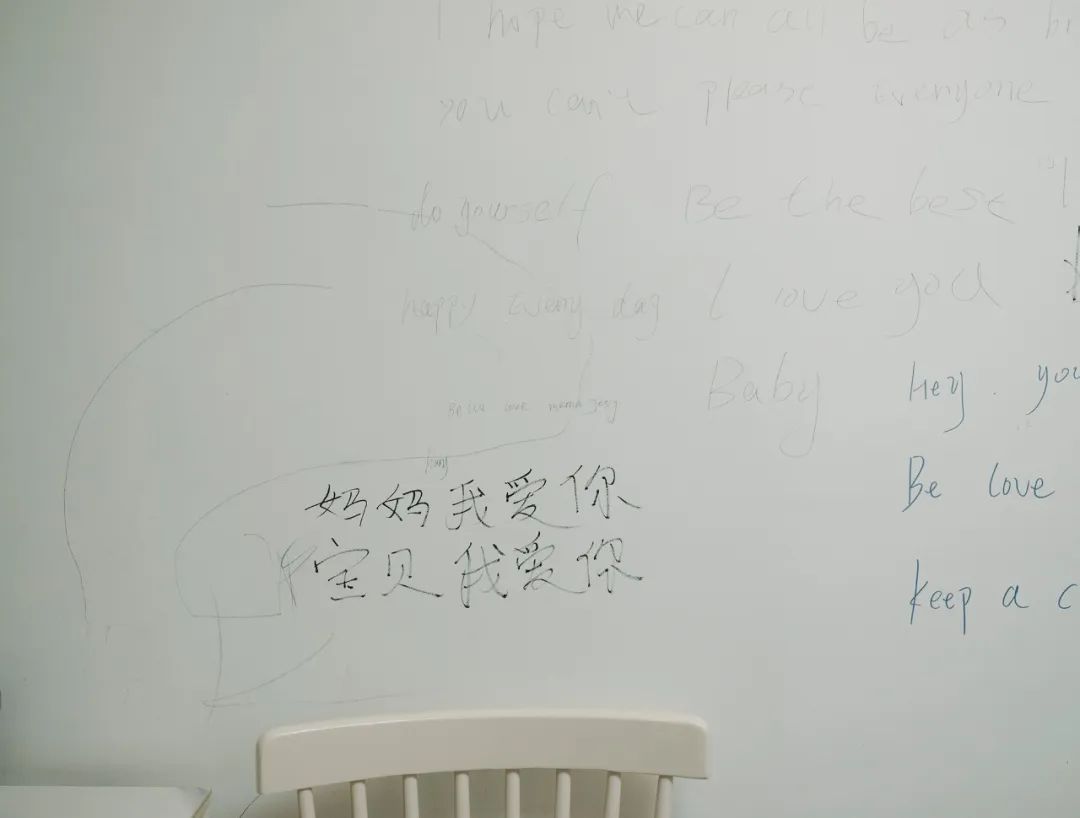 I hope we can all be as
you can't please everyone
do yourself Be the best
happy Every day I love you
Baby Hey. you
love mama
妈妈我爱你
Be love
宝贝我爱你
keep a c